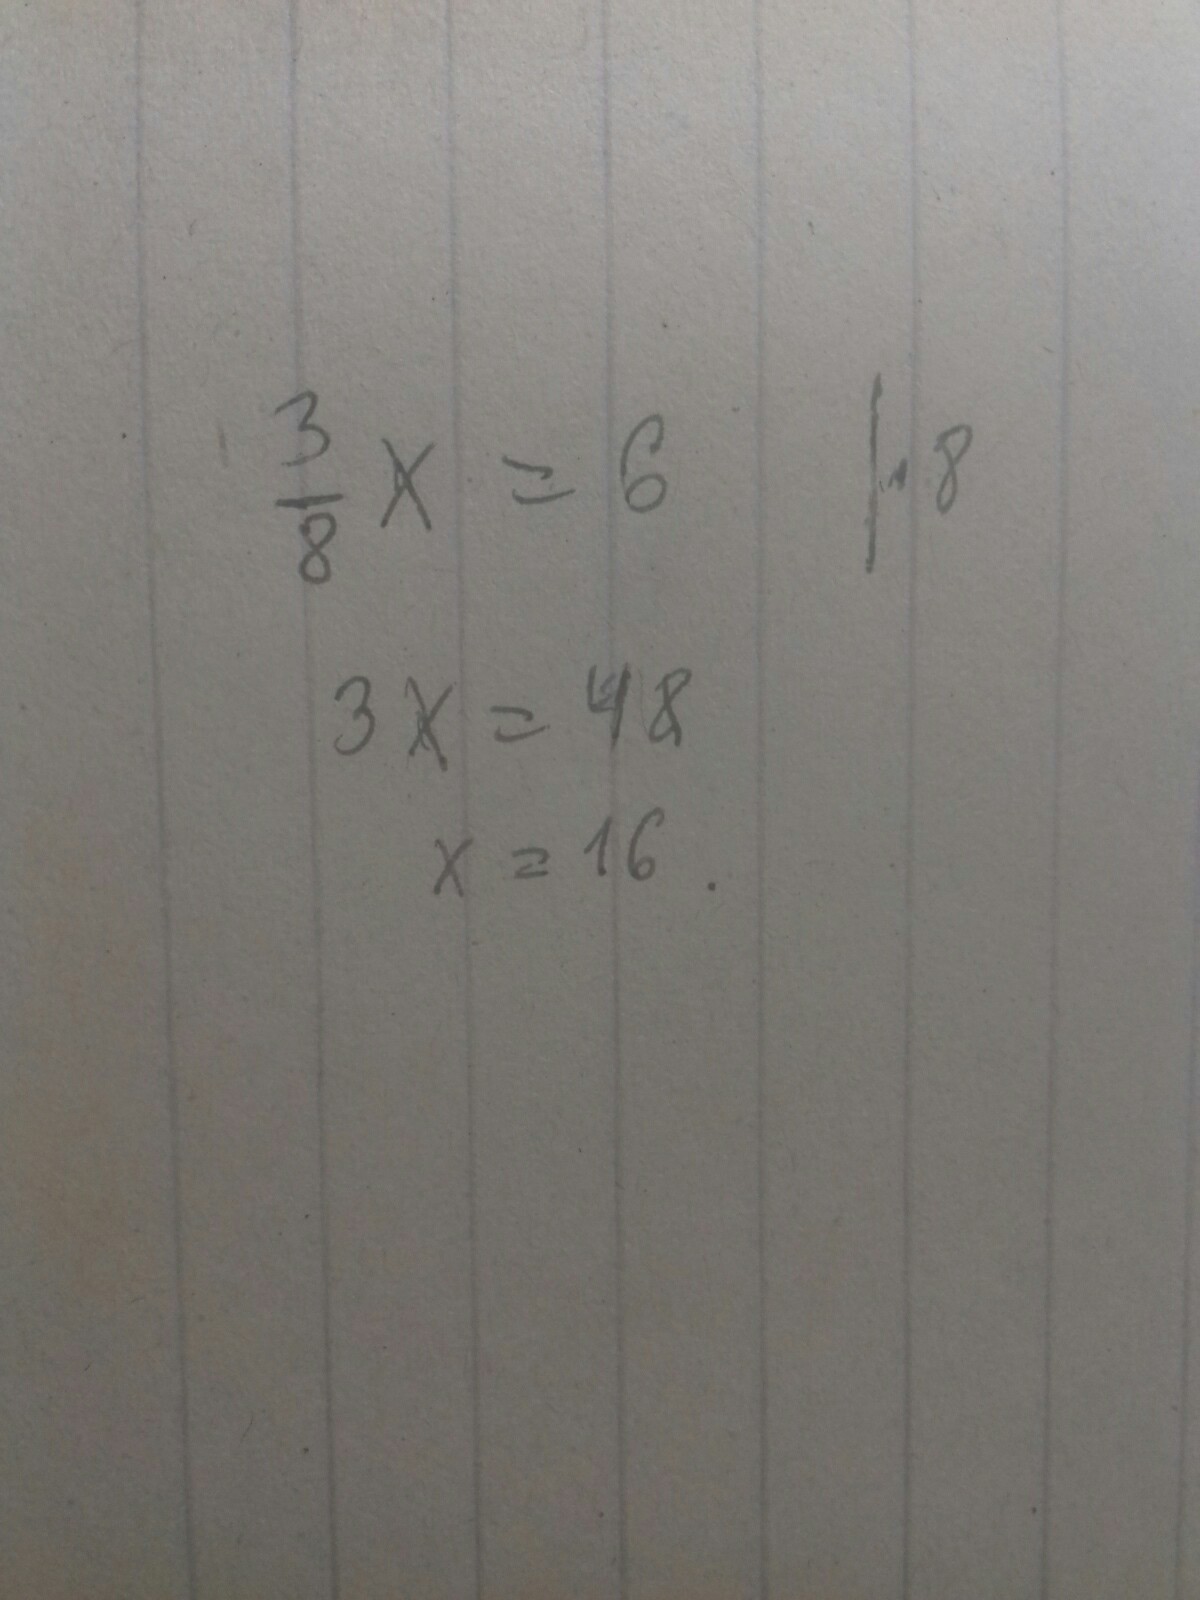 3/8 x = 6 | · 8
3x = 48
x = 16.